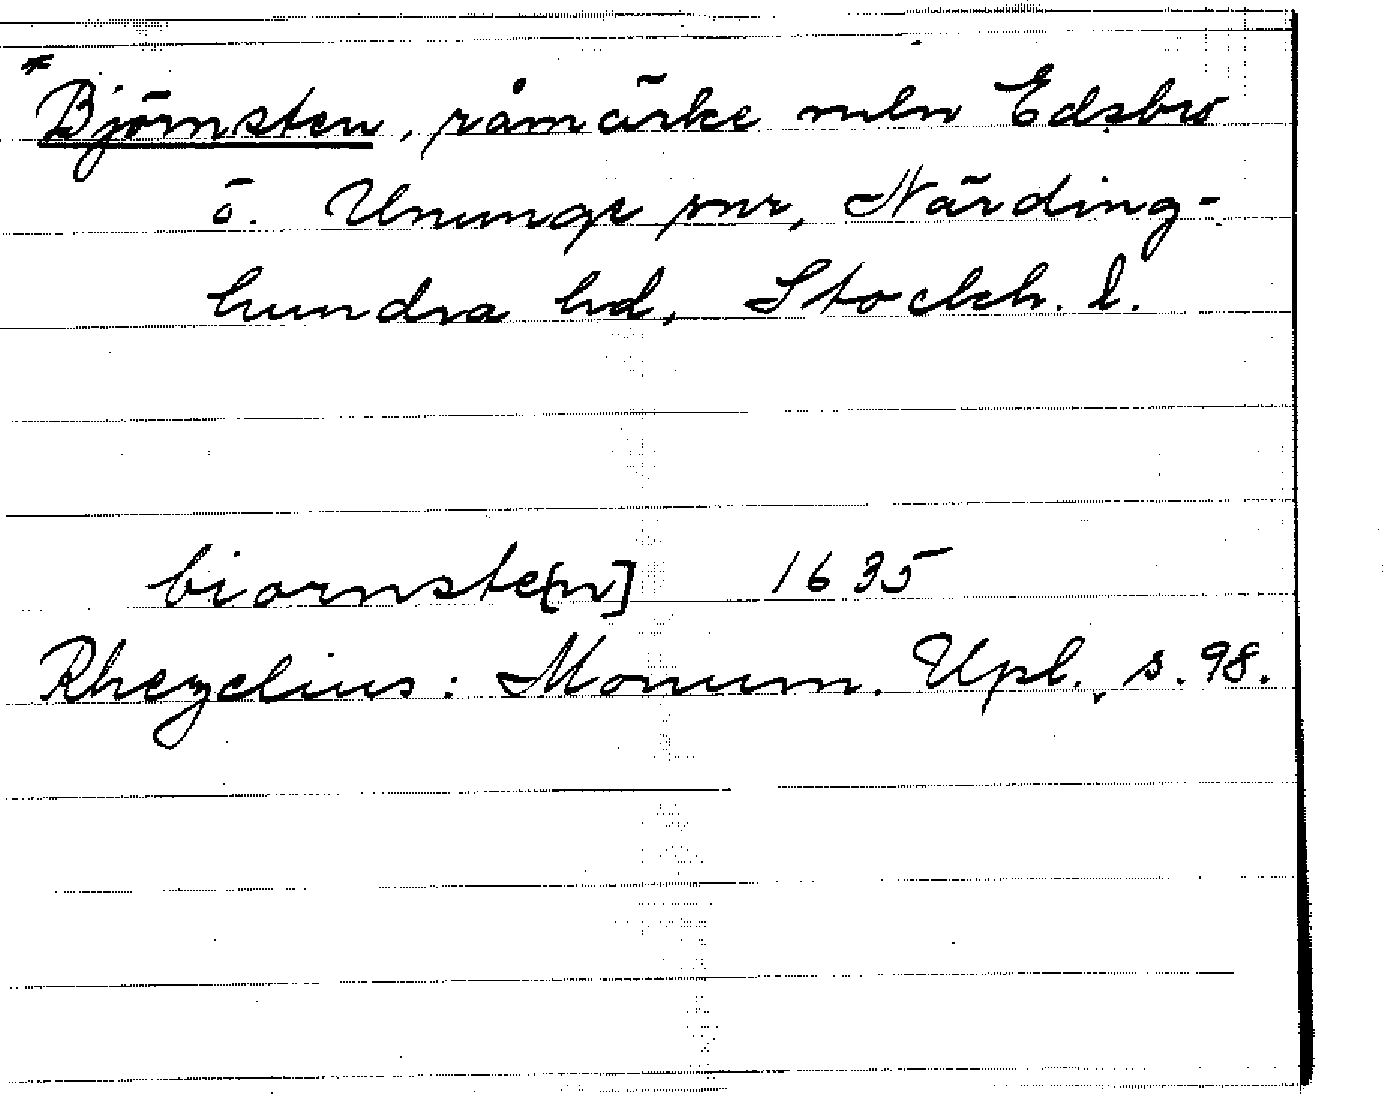 *Björnsten, råmärke mln Edsbro
o. Ununge snr, Närding-
hundra hd, Stockh. l.
biornste[n] 1635
Rhezelius: Monum. Upl., s. 98.